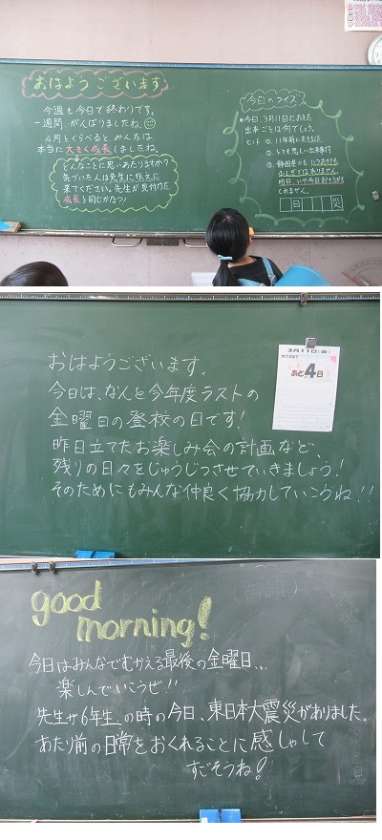 おはようございます
今週も今日で終わりです。
一週間、がんばりましたね。
4月とくらべると、みんなは
本当に大きく成長しましたね。
どんなことに思いあたりますか?
気づいた人は先生に伝えに
来てください。先生が見付けた
成長と同じかな?
今日のクイズ
今日3月11日におきた
出来ごとは何でしょう。
ヒント
① 11年前におきました
② とても悲しい出来事
③ 静岡県でも
明日、いや今日おこるかも
しれません。
日
災
おはようございます。
今日は、なんと今年度ラストの
金曜日の登校の日です!
昨日立てたお楽しみ会の計画など、
残りの日々をじゅうじつさせていきましょう!
そのためにもみんな仲良く協力していこうね!!
3月11日(金)
あと4日
good
morning!
今日はみんなでむかえる最後の金曜日…
楽しんでいこうぜ!!
先生が6年生の時の今日、東日本大震災がありました。
あたり前の日常をおくれることに感しゃして
すごそうね!